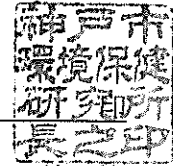 神戸市
環境保健
研究所
長之印